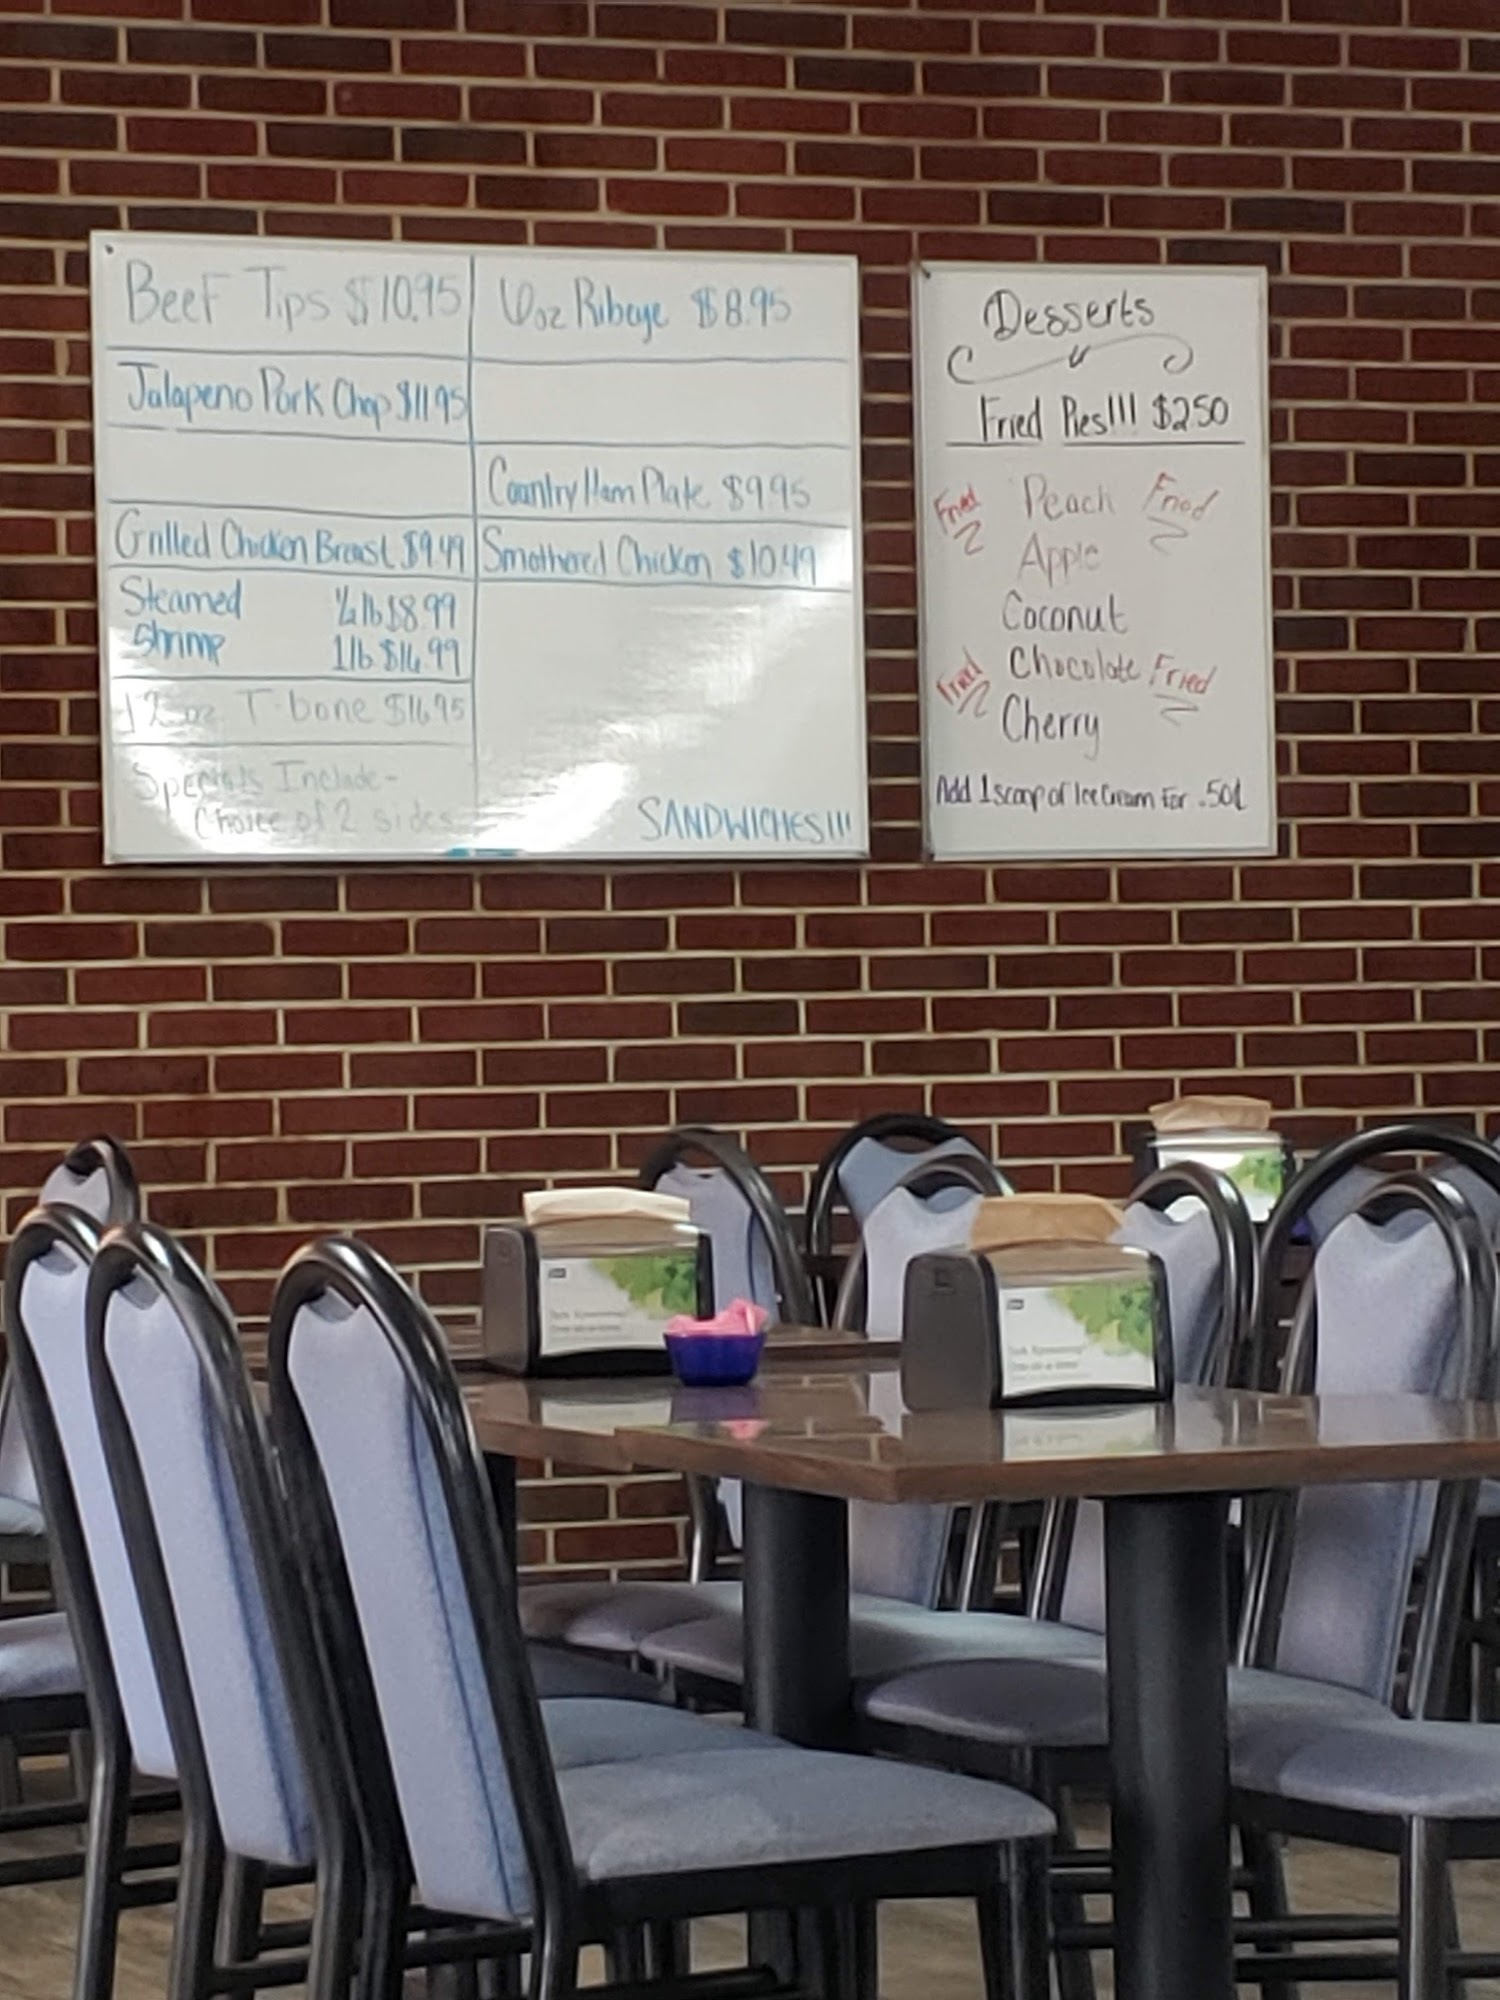 Beef Tips $10.95
Jalapeno Pork Chop $11.95
Grilled Chicken Breast $9.49
Steamed 1/2 lb $8.99
Shrimp 1 lb $16.99
12 oz T-bone $16.95
Specials Include-
Choice of 2 sides
6oz Ribeye $8.95
Country Ham Plate $9.95
Smothered Chicken $10.49
SANDWICHES!!!
Desserts
Fried Pies!!! $2.50
Fried Peach Fried
Apple
Coconut
Fried Chocolate Fried
Cherry
Add 1 scoop of Ice Cream For .50¢